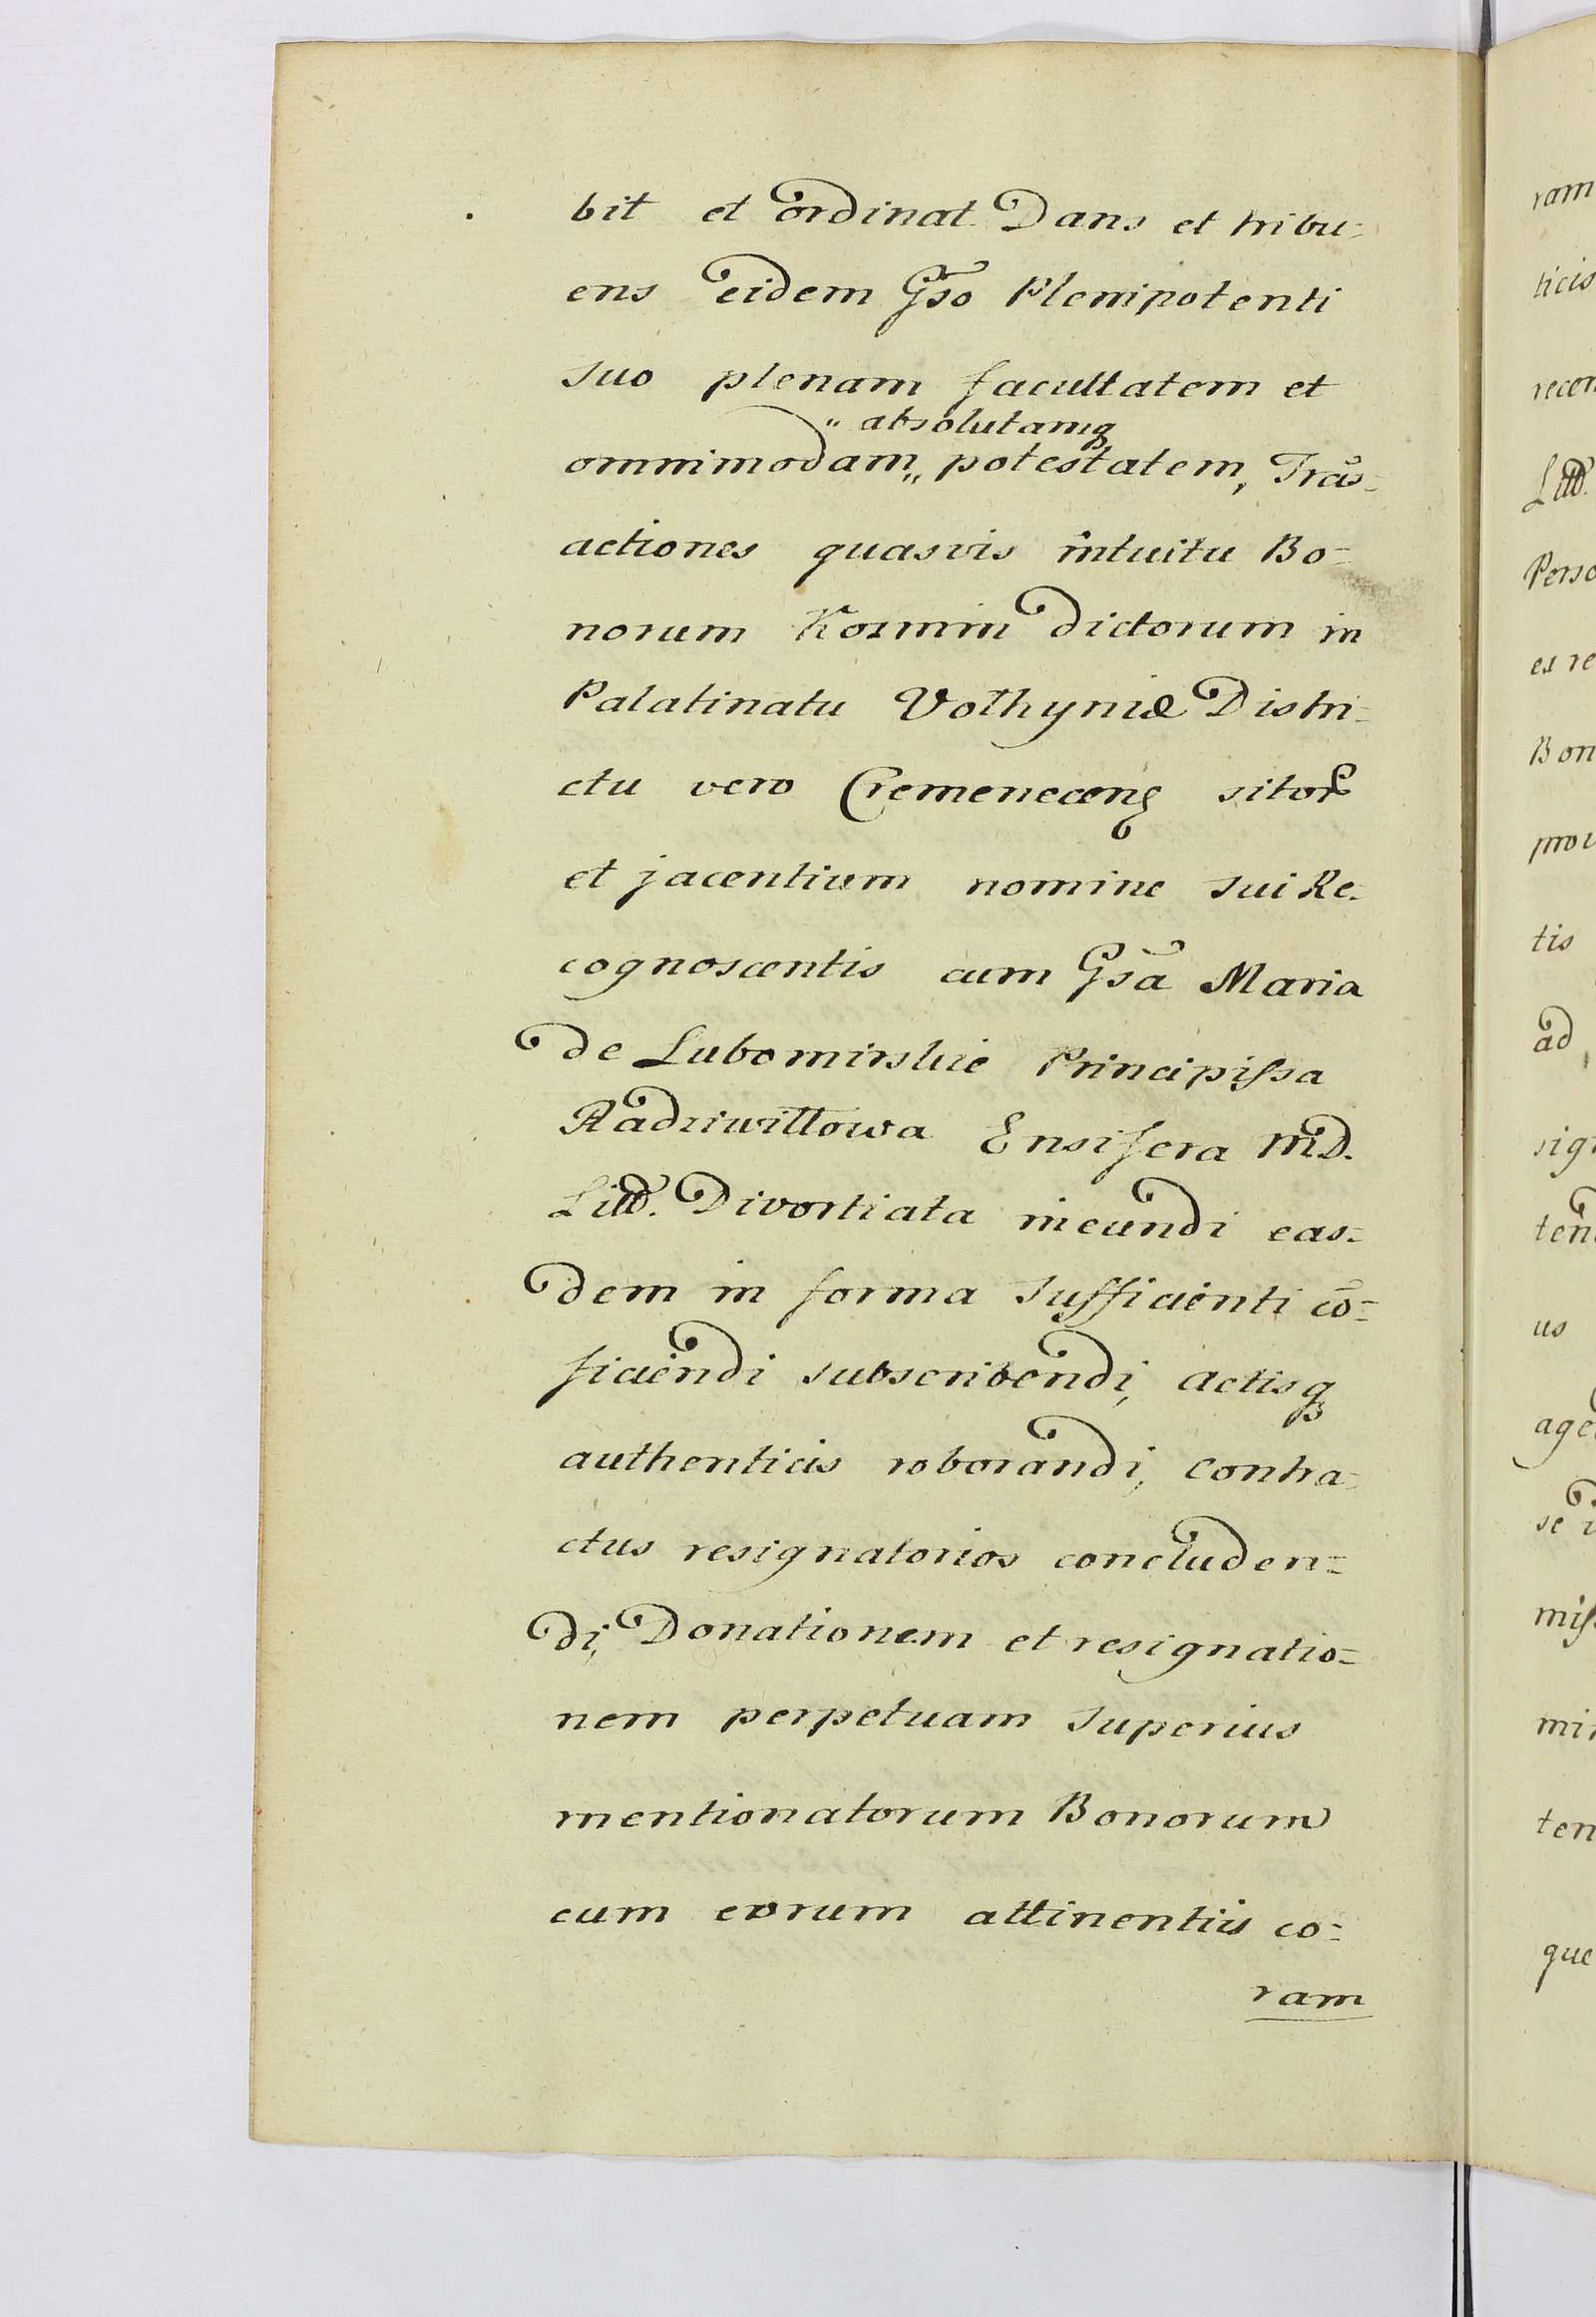 bit et ordinat Dans et tribu=
ens eidem Gso Plenipotenti
suo plenam facultatem et
„ absolutamq
omnimodam„ potestatem, Trãs=
actiones quasvis intuitu Bo=
norum Kozmin dictorum in
Palatinatu Volhyniæ Distri=
ctu vero Cremenecens sitor
et jacentium nomine sui Re=
cognoscentis cum Gsa Maria
de Lubomirskie Principissa
Radziwiłłowa Ensifera M.D.
Litt. Divortiata ineundi eas=
dem in forma sufficienti cõ=
ficiendi subscribendi, actisq
authenticis roborandi, contra=
ctus resignatorios concluden=
di, Donationem et resignatio=
nem perpetuam superius
mentionatorum Bonorum
cum eorum attinentiis co=
ram
ram
ticis
recon
Litt.
Perso
es re
Bon
prov
tis
ad
sign
ten
us
age
se i
miss
min
ten
que